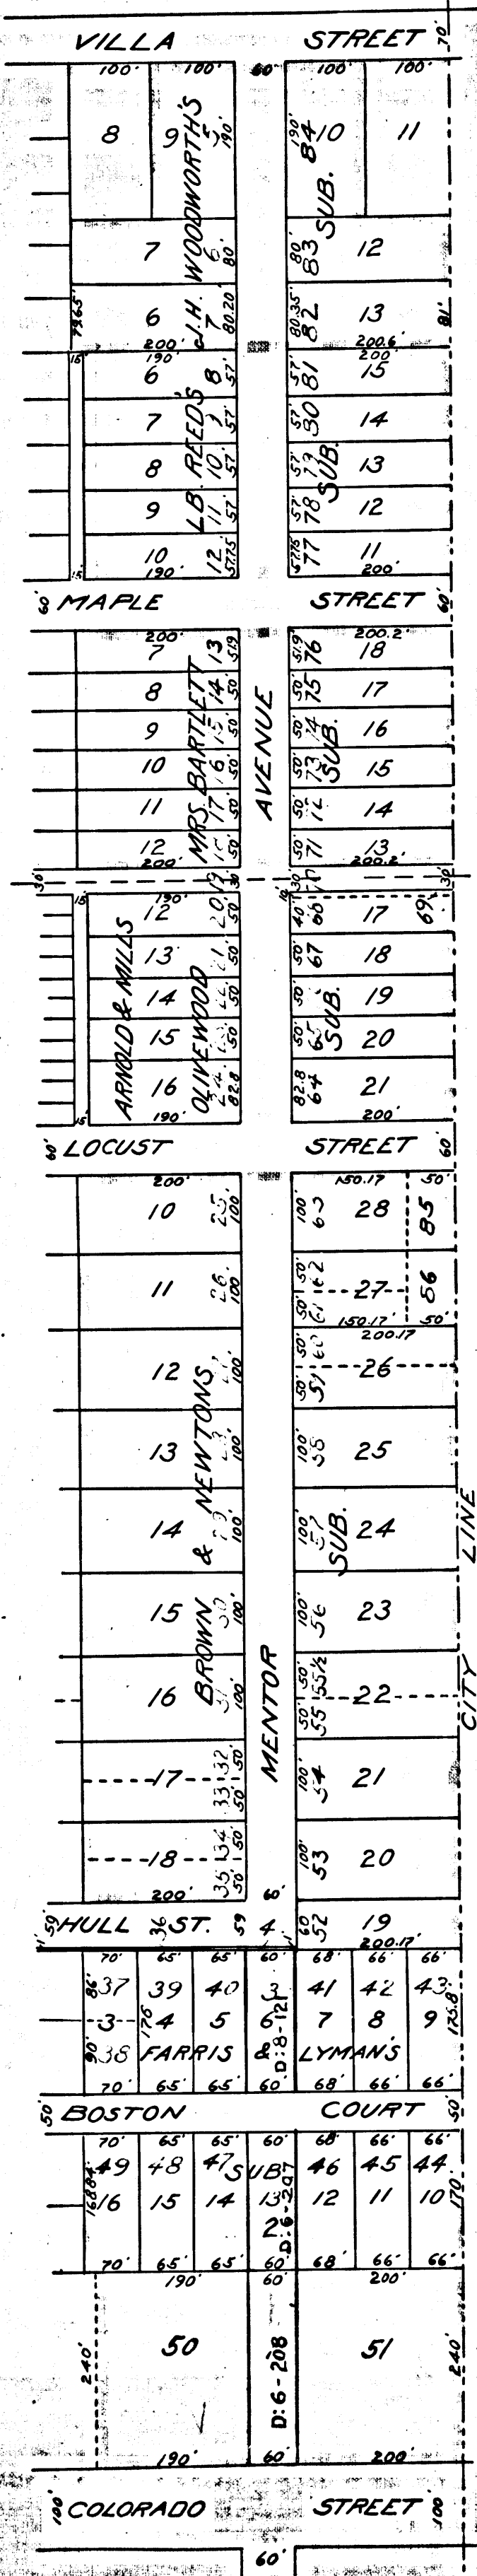 VILLA STREET 70'
100' 100' 60' 100' 100'
8 9 5 190' 190' 84 10 11
J.H. WOODWORTH'S SUB.
7 6 80' 80' 83 12
79.65' 6 7 80.20' 80.35' 82 13 81'
200' 200.6'
15' 190' 200'
6 8 57' 57' 81 15
7 9 57' 57' 80 14
L.B. REED'S SUB.
8 10 57' 57' 79 13
9 11 57' 57' 78 12
10 12 57.75 57.75 77 11
15' 190' 200'
60' MAPLE STREET 60'
200' 200.2'
7 13 51.9 51.9' 76 18
8 14 50' 50' 75 17
MRS. BARTLETT SUB.
AVENUE
9 15 50' 50' 74 16
10 16 50' 50' 73 15
11 17 50' 50' 72 14
12 18 50' 50' 71 13
200' 200.2'
30' 19 30' 30' 70 30'
15' 190' 10'
12 20 50' 40' 68 17 69
13 21 50' 50' 67 18
ARNOLD & MILLS OLIVEWOOD SUB.
14 22 50' 50' 19
15 50' 50' 65 20
16 24 82.8 82.8 64 21
15' 190' 200'
60' LOCUST STREET 60'
200' 150.17 50'
10 25 100' 100' 63 28 85
11 26 100' 50' 62 27 86
50' 61 150.17' 50'
200.17
12 100' 50' 60 26
50' 59
13 28 100' 100' 58 25
BROWN & NEWTONS SUB.
14 29 100' 100' 57 24
CITY LINE
15 30 100' 100' 56 23
16 31 100' 50' 55 1/2 22
50' 55
MENTOR
17 32 50' 100' 54 21
33 50'
18 34 50' 100' 53 20
35 50'
200' 60'
1' 59' HULL 36 ST. 59 4 1' 60 52 19
200.17'
70' 65' 65' 60' 68' 66' 66'
86' 37 39 40 3 41 42 43
3 176 4 5 6 7 8 9 175.8'
90' 38 FARRIS & LYMAN'S
D:8-121
70' 65' 65' 60' 68' 66' 66'
50' BOSTON COURT 50'
70' 65' 65' 60' 68' 66' 66'
49 48 47 SUB. 46 45 44
168.84' 16 15 14 13 12 11 10 170'
2 D:6-207
70' 65' 65' 60' 68' 66' 66'
190' 60' 200'
240' 50 D:6-208 51 240'
190' 60' 200'
100' COLORADO STREET 100'
60'